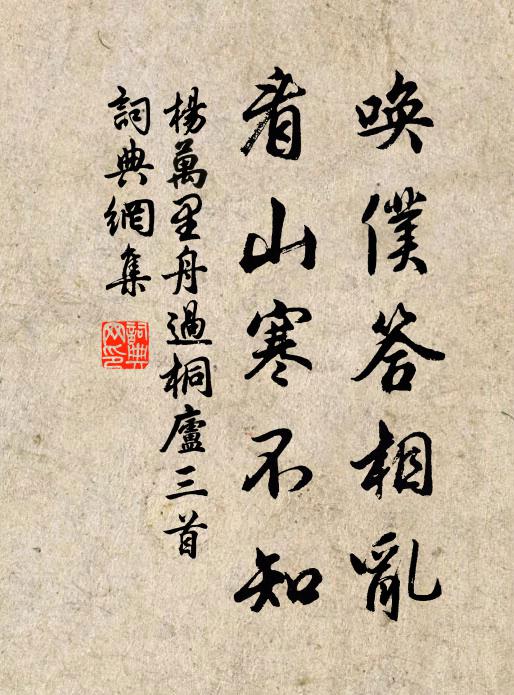 喚僕答相亂
看山寒不知
楊萬里舟過桐廬三首
詞典網集
詞典网印